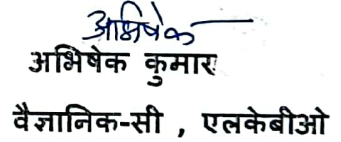 अभिषेक
अभिषेक कुमार
वैज्ञानिक-सी , एलकेबीओ